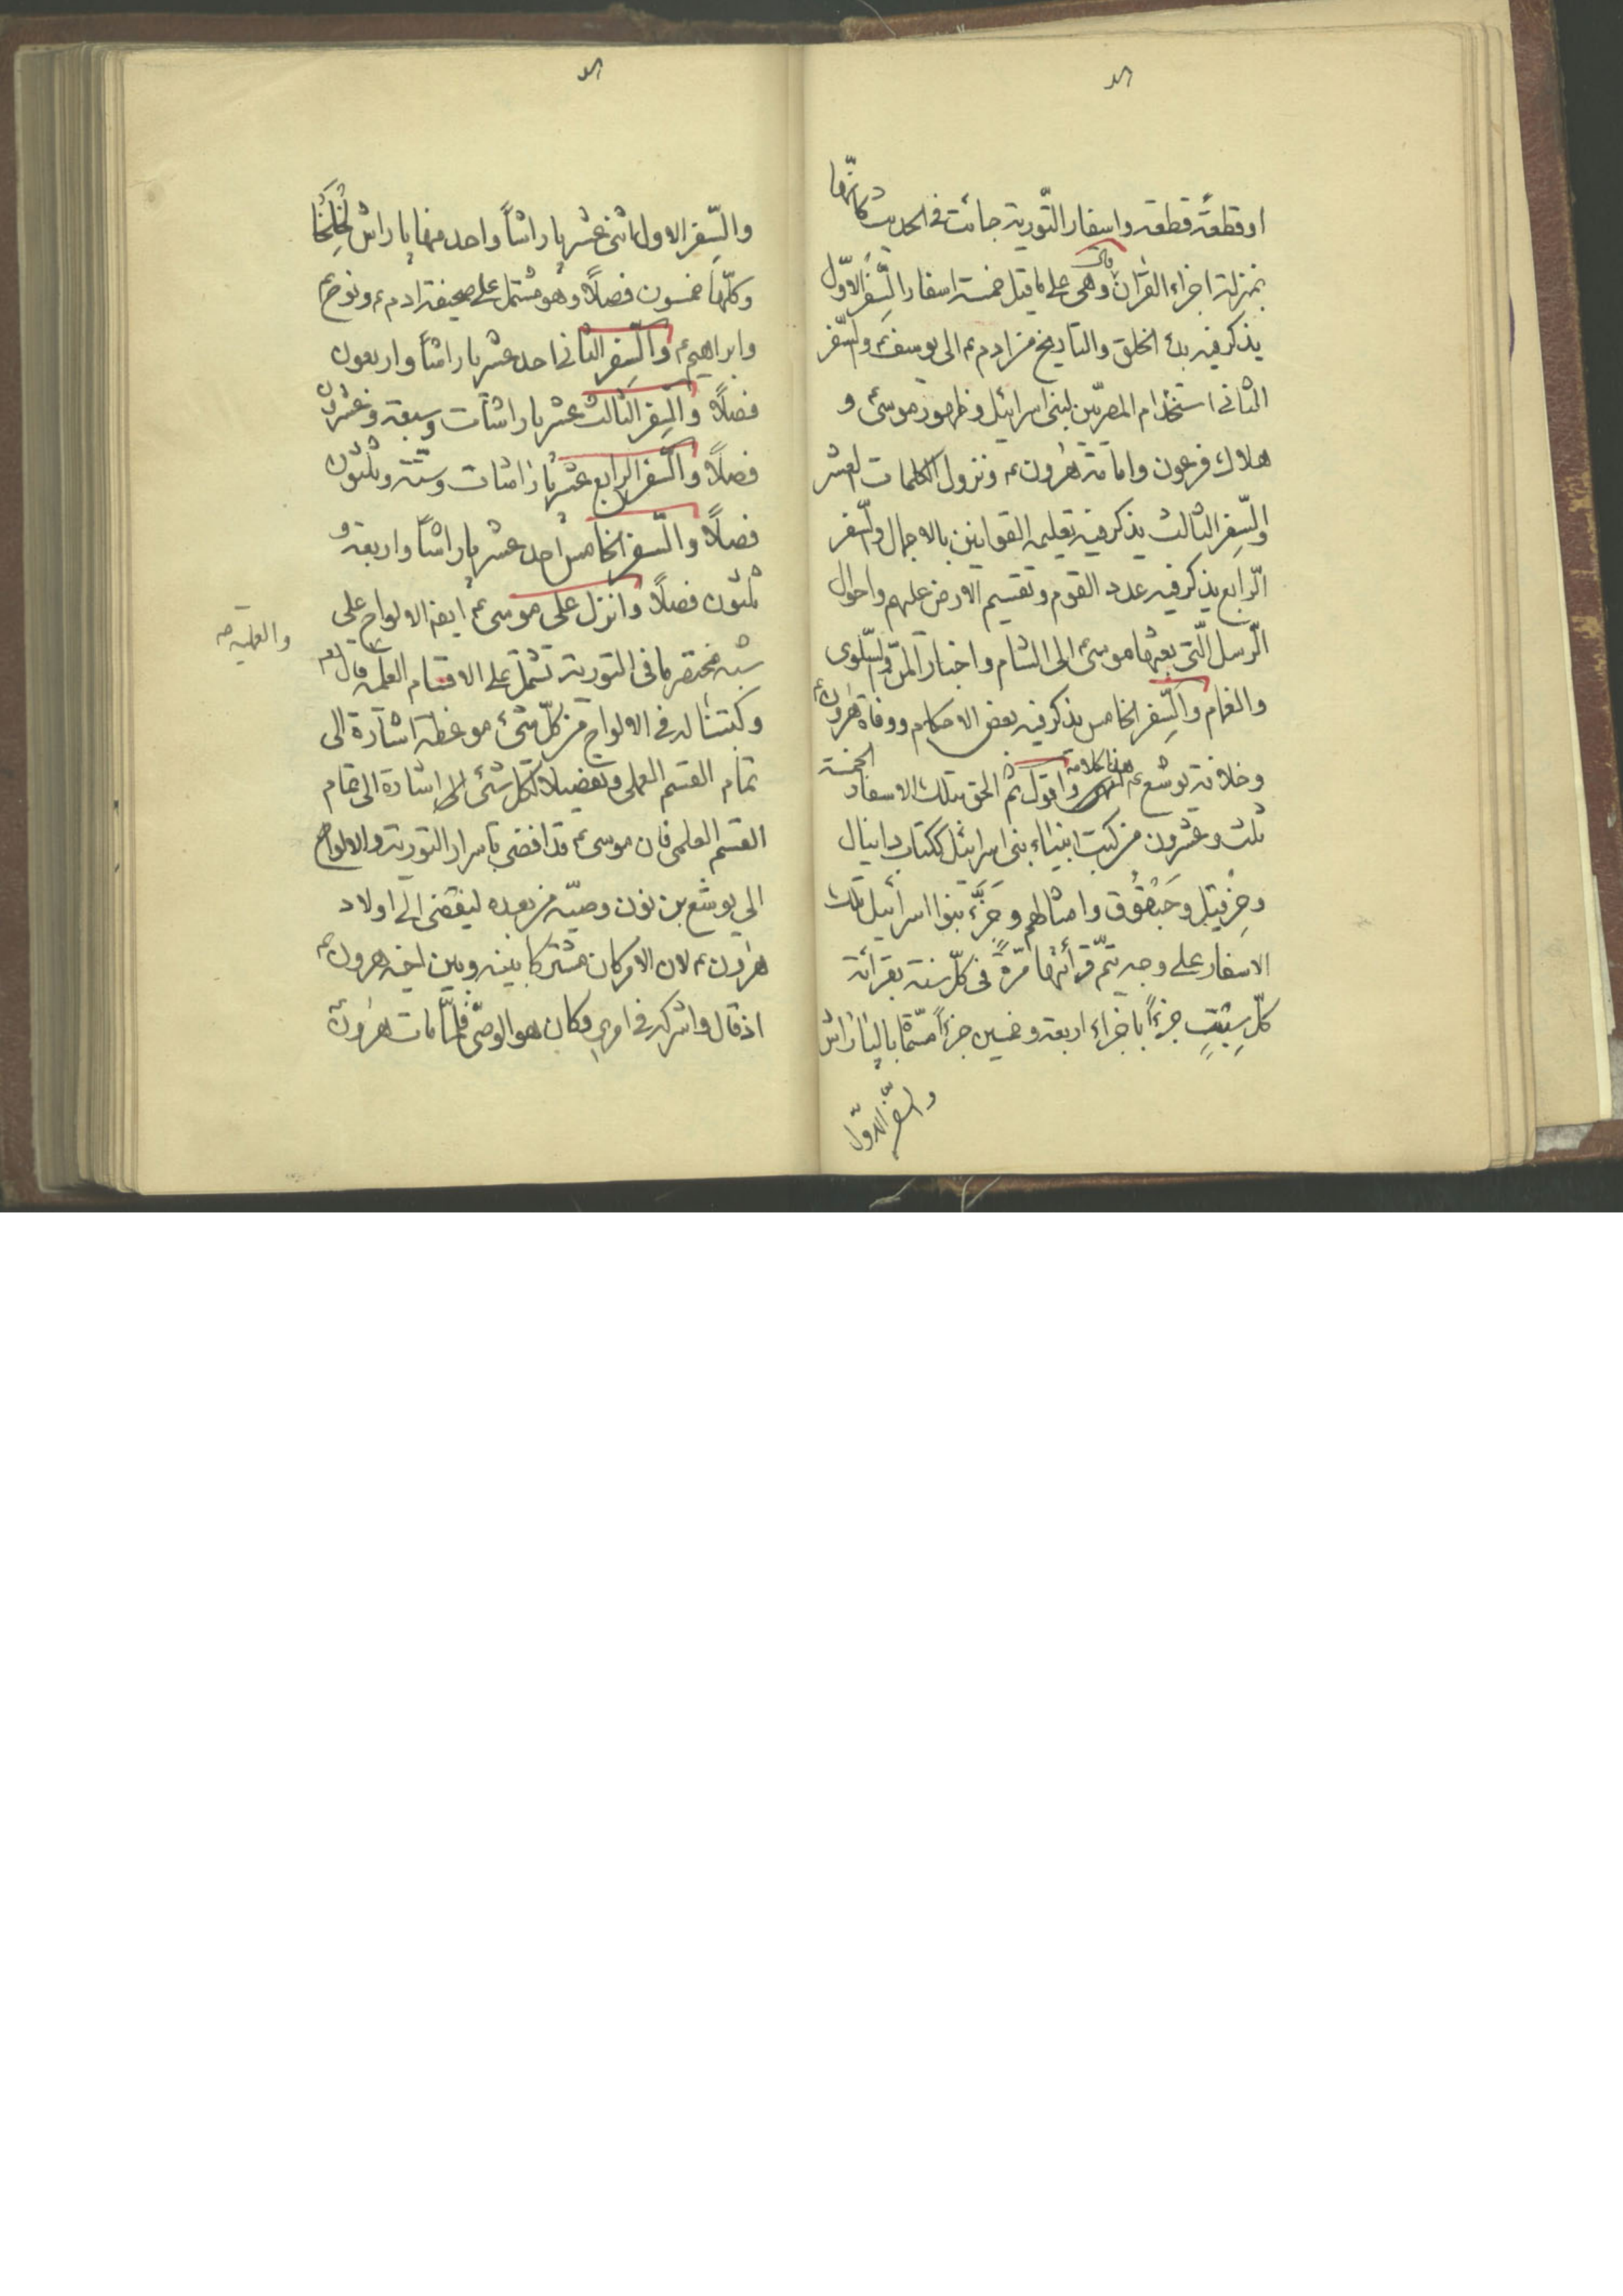 او قطعةً قطعة واسفار التّورية جائت فى الحديث كانّها
بمنزلة اجزاء القرٰان وهى على ما قيل خمسة اسفار السِّفر الاوّل
يذكر فيه بدء الخلق والتاريخ من ادم ء الى يوسف ء والسّفر
الثانى استخدام المصريّين لبنى اسرائيل وظهور موسى ء و
هلاك فرعون وامامة هٰرون ء ونزول الكلمات العشر
والسِّفر الثالث يذكر فيه تعليم القوانين بالاجمال والسّفر
الرّابع يذكر فيه عدد القوم وتقسيم الارض عليهم واحوال
الرّسل الّتى بعثها موسى ء الى الشام واخبار المنّ والسّلوى
والغمام والسِّفر الخامس يذكر فيه بعض الاحكام ووفاة هٰرون ء
وخلافة يوشع ء هذا كلامه واقول ثم الحق بتلك الاسفار الخمسة
ثلث وعشرون من كتب انبياء بنى اسرائيل ككتاب دانيال
وحِزقيل وحَبَقُّوق وامثالهم وجَزَّءَ بنوا اسرائيل تلك
الاسفار على وجه تتمّ قرأئتها مرّةً فى كلّ سنة بقرائة
كلّ سبتٍ جزءاً باجزاء اربعة وخمسين جزءاً مسمّاة بالپاراش
والسفر الاوّل
والسِّفر الاول اثنى عشر پاراشاً واحد منها پاراش
وكلّها خمسون فصلًا وهو مشتمل على صحيفة ادم ء ونوح ء
وابراهيم ء والسِّفر الثانى احد عشر پاراشاً واربعون
فصلًا والسِّفر الثالث عشر پاراشات وسبعة وعشرون
فصلًا والسّفر الرابع عشر پاراشات وستّة وثلثون
فصلًا والسّفر الخامس احد عشر پاراشاً واربعة و
ثلثون فصلًا وانزل على موسى ء ايضه الالواح على
شبه مختصر ما فى التورية تشتمل على الاقسام العلميّة قال تعالى
والعمليّة صه
وكتبنا له فى الالواح من كلّ شئ موعظة اشارة الى
تمام القسم العملى وتفصيلا لكلّ شئ اشارة الى تمام
القسم العلمى فان موسى ء قد افضى باسرار التورية والالواح
الى يوشع بن نون وصيّه من بعده ليفضى الى اولاد
هٰرون ء لان الامر كان مشتركا بينه وبين اخيه هرون ء
اذ قال واشركه فى امرى وكان هو الوصىّ فلمّا مات هٰرون ء